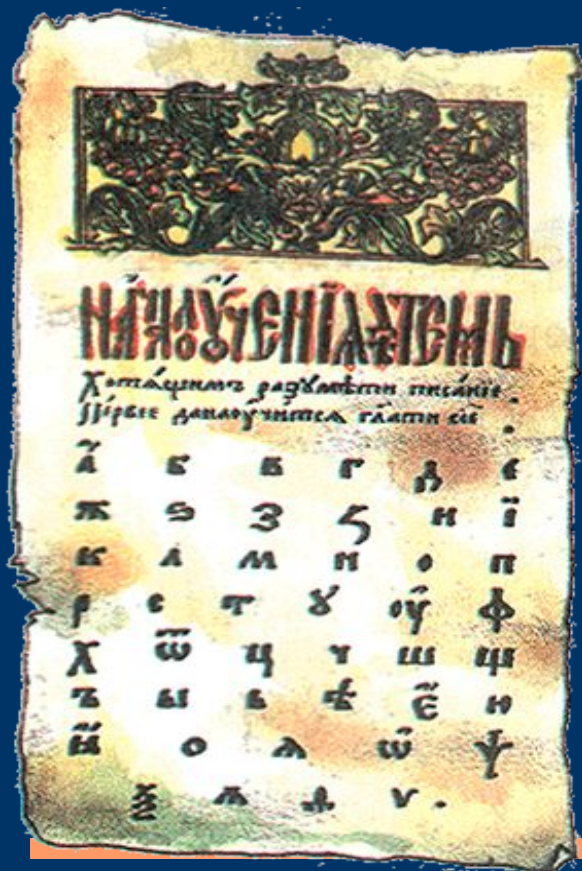 НАЧАЛОУЧЕНІѦДѢТЕМЪ
Хотѧщимъ разꙋмѣти писаніе.
Пе́рвіе данаоу́читсѧ гл҃ати сіѐ.
а б в г д є
ж ѕ з 5 и ї
к л м н о п
р с т ꙋ оу ф
х ѿ ц ч ш щ
ъ ы ь ѣ є ю
о ѧ ѡ ѱ
ѯ ѧ ѵ.